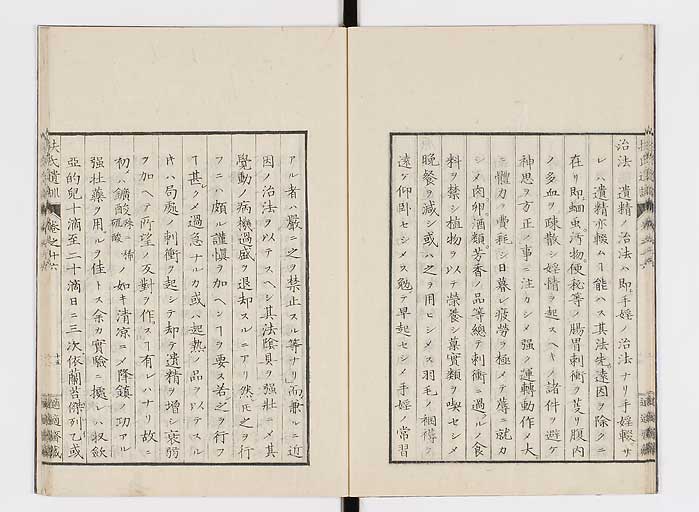 治法 遺精ノ治法ハ即手婬ノ治法ナリ手婬輟サ
レハ遺精亦輟ムヿ能ハス其法先遠因ヲ除クニ
在リ即蛔蟲汚物便秘等ノ腸胃刺衝ヲ芟リ腹内
ノ多血ヲ疎散シ婬情ヲ起スヘキノ諸件ヲ避ケ
神思ヲ方正ノ事ニ注カシメ強ク運轉動作メ大
ニ體力ヲ費耗シ日暮レ疲勞ヲ極メテ蓐ニ就カ
シメ肉卵酒類芳香ノ品等總テ刺衝ニ過ルノ食
料ヲ禁シ植物ヲ以テ榮養シ菓實類ヲ喫セシメ
晩餐ヲ減シ或ハ之ヲ用ヒシメス羽毛ノ裀褥ヲ
遠ケ仰臥セシメス勉テ早起セシメ手婬ノ常習
アル者ハ嚴ニ之ヲ禁止スル等ナリ而兼ルニ近
因ノ治法ヲ以テスヘシ其法陰具ヲ強壯ニメ其
覺動ノ病機過盛ヲ退却スルニアリ然𪜈之ヲ行
フニハ頗ル謹愼ヲ加ヘンヿヲ要ス若之ヲ行フ
ヿ甚シメ過急ナルカ或ハ起熱ノ品ヲ以テスル
𪜈ハ局處ノ刺衝ヲ起シテ却テ遺精ヲ増シ衰弱
ヲ加ヘテ所望ノ反對ヲ作スヿ有レハナリ故ニ
初ハ鑛酸殊ニ稀硫酸ノ如キ清凉ニメ降鎮ノ功アル
強壯藥ヲ用ルヲ佳トス余カ實驗ニ據レハ収斂
亞的兒十滴至二十滴日ニ三次依蘭苔傑列乙或
扶氏遺訓 卷之十六
適適齋藏